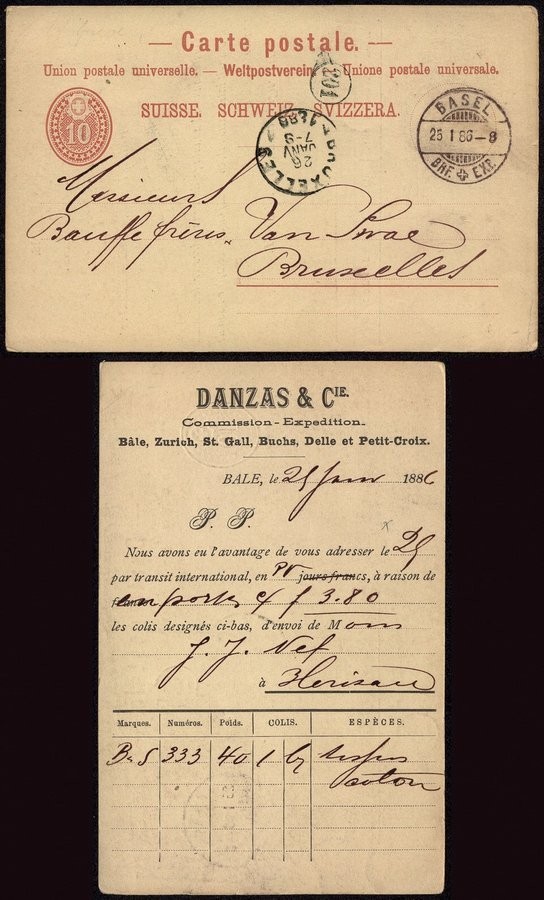 — Carte postale. —
Union postale universelle. — Weltpostverein. — Unione postale universale.
SUISSE. SCHWEIZ. SVIZZERA.
10
201
BRUXELLES
26
JANV
7-9
BASEL
25 I 86-8
BHF. EXP.
Messieurs
Bauffe frères, Van
Bruxelles
DANZAS & CIE.
Commission-Expedition.
Bâle, Zurich, St. Gall, Buchs, Delle et Petit-Croix.
BALE, le 25 Janv 1886
P. P.
Nous avons eu l'avantage de vous adresser le 25
par transit international, en PV jours francs, à raison de
en port f 3.80
les colis designés ci-bas, d'envoi de Mons
J. J. Nef
à Herisau
Marques. Numéros. Poids. COLIS. ESPÈCES.
B.S 333 40 1 tissus
coton